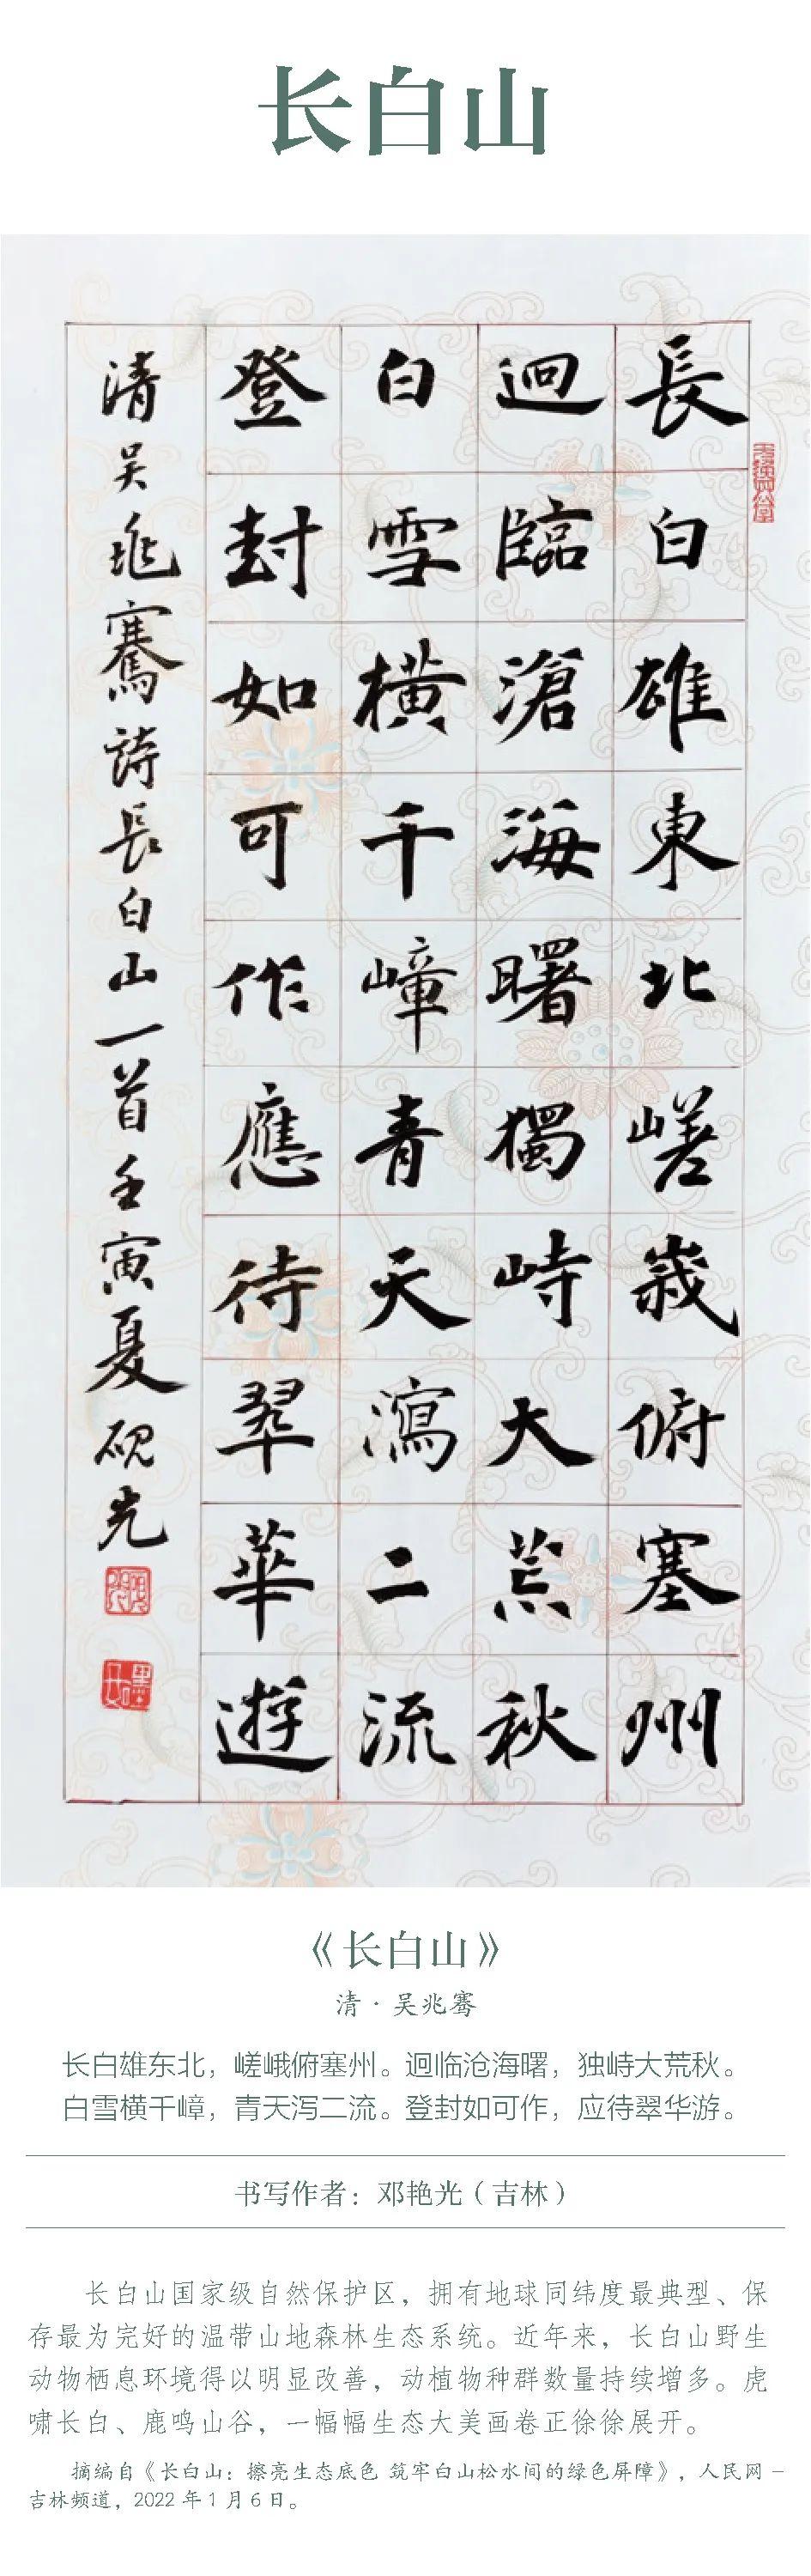 长白山
長白雄東北嵯峩俯塞州
迥臨滄海曙獨峙大荒秋
白雪横千嶂青天瀉二流
登封如可作應待翠華遊
清吴兆騫詩長白山一首壬寅夏硯光
《长白山》
清·吴兆骞
长白雄东北，嵯峨俯塞州。迥临沧海曙，独峙大荒秋。
白雪横千嶂，青天泻二流。登封如可作，应待翠华游。
书写作者：邓艳光（吉林）
长白山国家级自然保护区，拥有地球同纬度最典型、保
存最为完好的温带山地森林生态系统。近年来，长白山野生
动物栖息环境得以明显改善，动植物种群数量持续增多。虎
啸长白、鹿鸣山谷，一幅幅生态大美画卷正徐徐展开。
摘编自《长白山：擦亮生态底色 筑牢白山松水间的绿色屏障》，人民网－
吉林频道，2022 年 1 月 6 日。